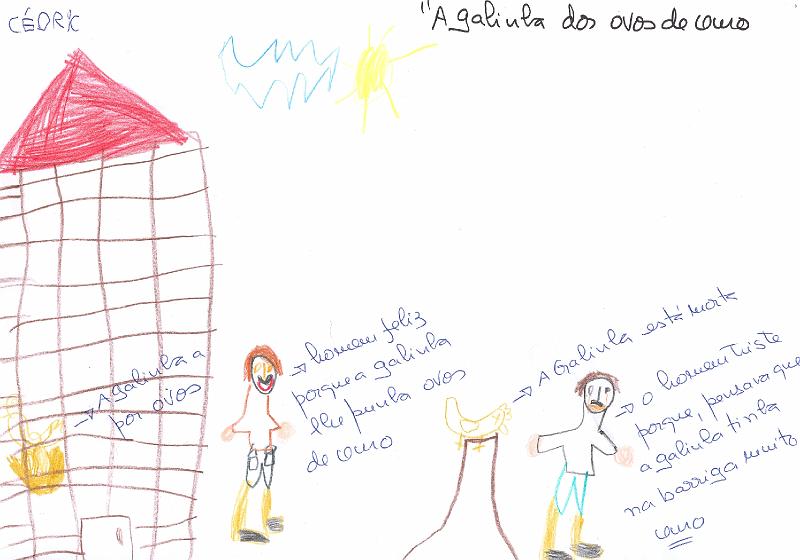 CÉDRIC
"A galinha dos ovos de ouro
A galinha a
por ovos
homem feliz
porque a galinha
lhe punha ovos
de ouro
A Galinha está morta
o homem triste
porque, pensava que
a galinha tinha
na barriga muito
ouro